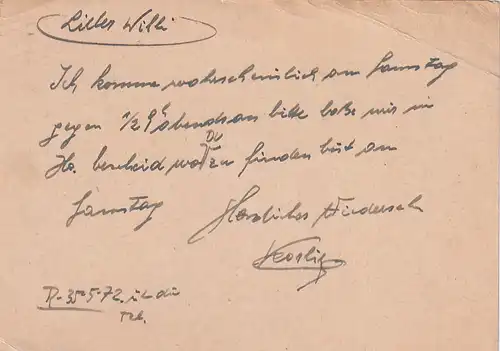 Lieber Willi
Ich komme wahrscheinlich am Samstag
gegen 1/2 9h abends an bitte laße mir in
Ho. bescheid wo Du zu finden bist am
Samstag
Herzliches Wiedersehn
R-35-5-72. ist die
Tel.